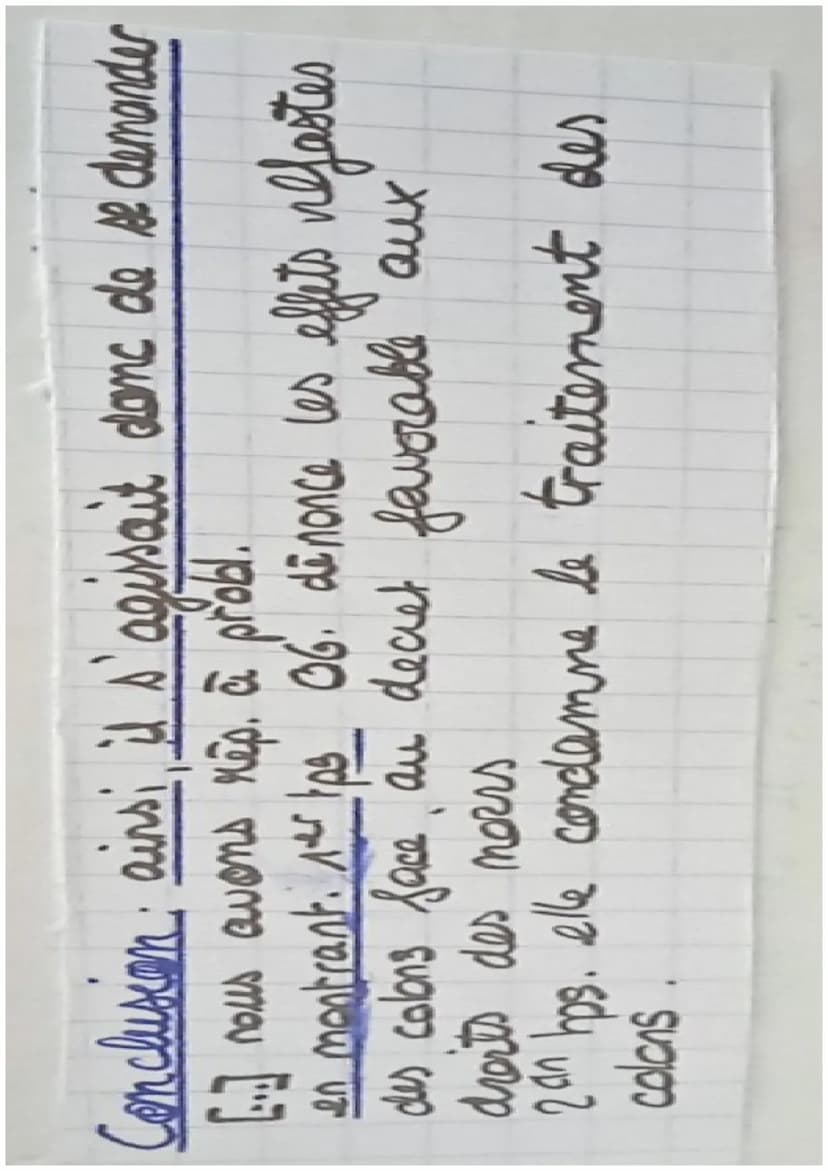 Conclusion : ainsi, il s'agissait donc de se demander
[...] nous avons rép. à probl.
en montrant. 1er tps OG. dénonce les effets néfastes
des colons face au decret favorable aux
droits des noirs
2nd tps. elle condamne le traitement des
colons.